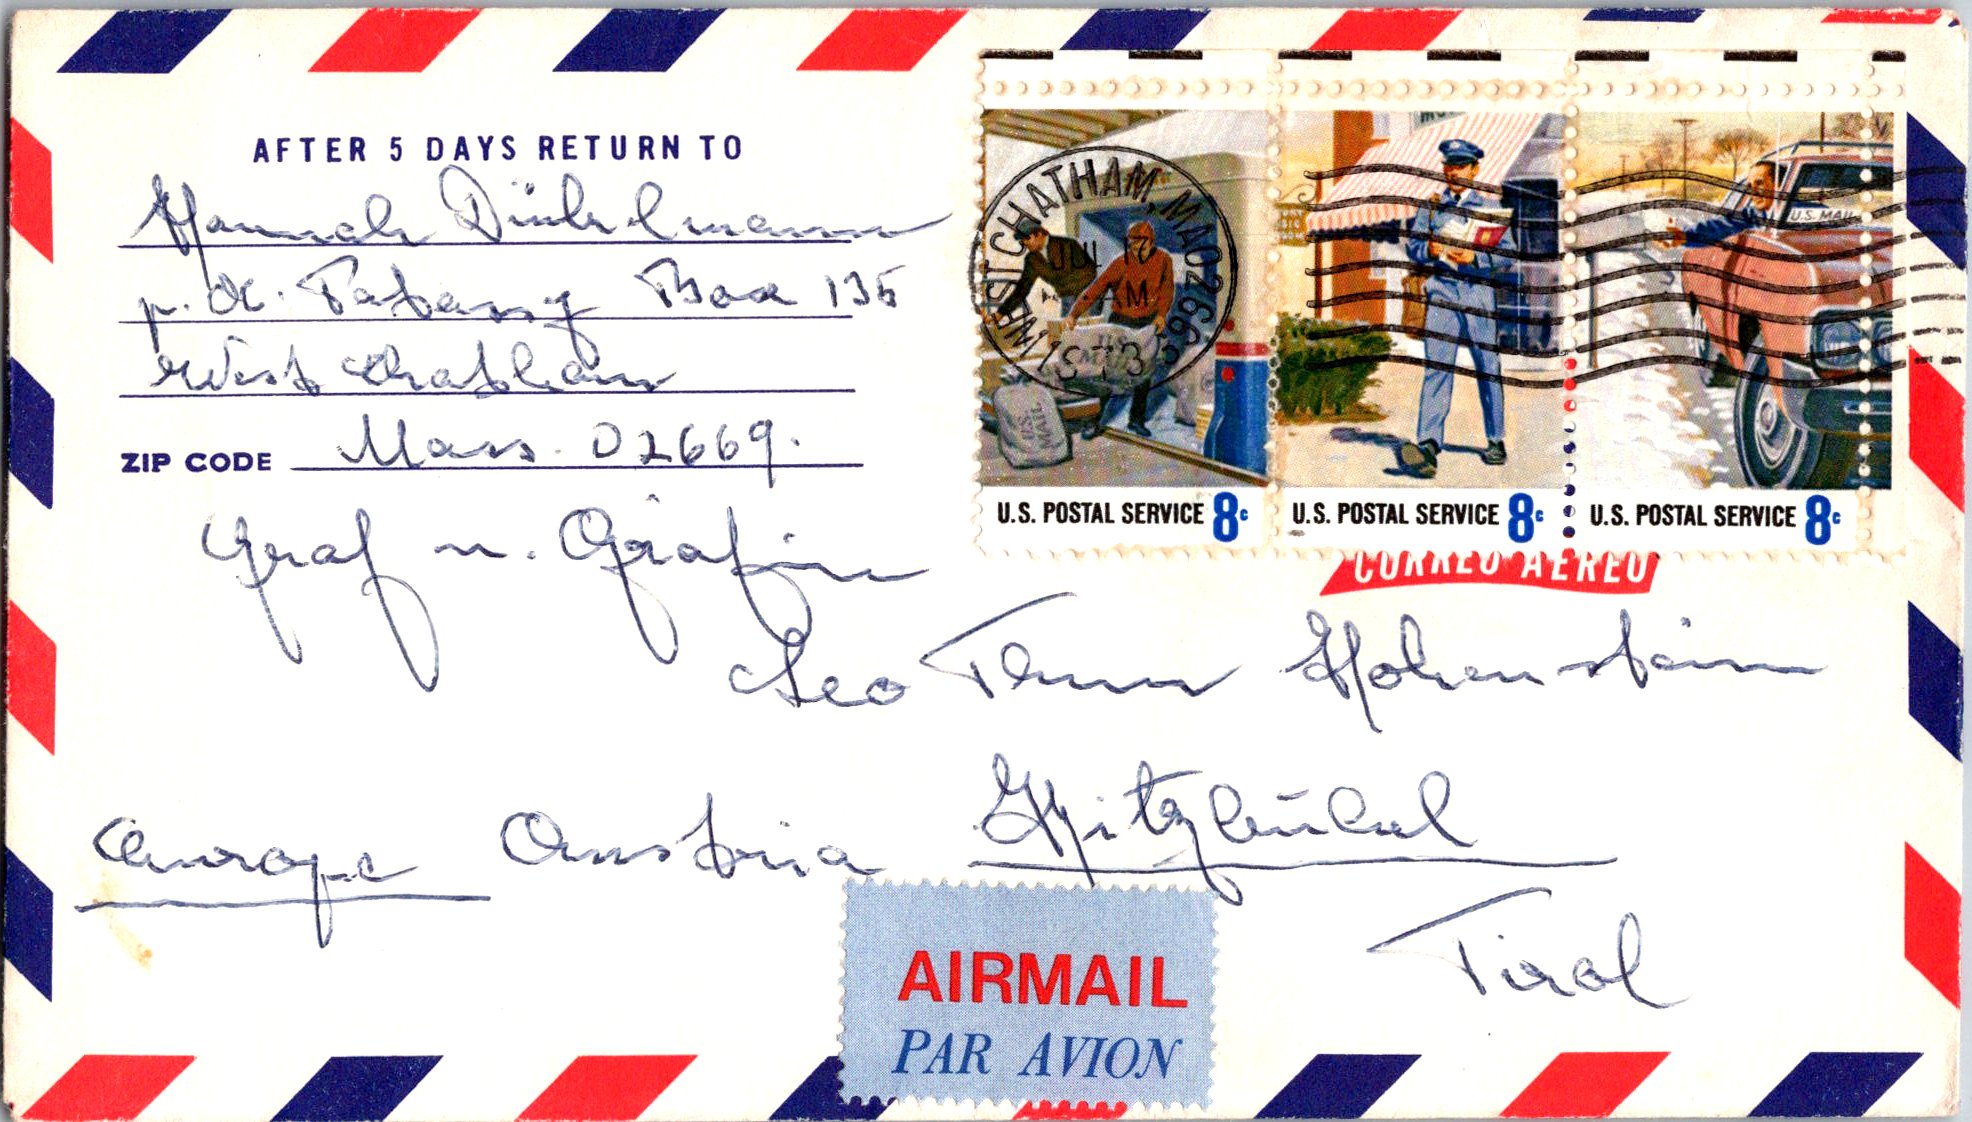 AFTER 5 DAYS RETURN TO
Hannah Dinkelmann
Box 135
West Chatham
ZIP CODE Mass. 02669.
WEST CHATHAM, MA 02669
JUL 17
AM
1973
U.S. MAIL
U.S. MAIL
U.S. POSTAL SERVICE 8c
U.S. POSTAL SERVICE 8c
U.S. POSTAL SERVICE 8c
CORREO AEREO
Graf u. Gräfin
Leo Thun Hohenstein
Europe Austria Kitzbühel
Tirol
AIRMAIL
PAR AVION